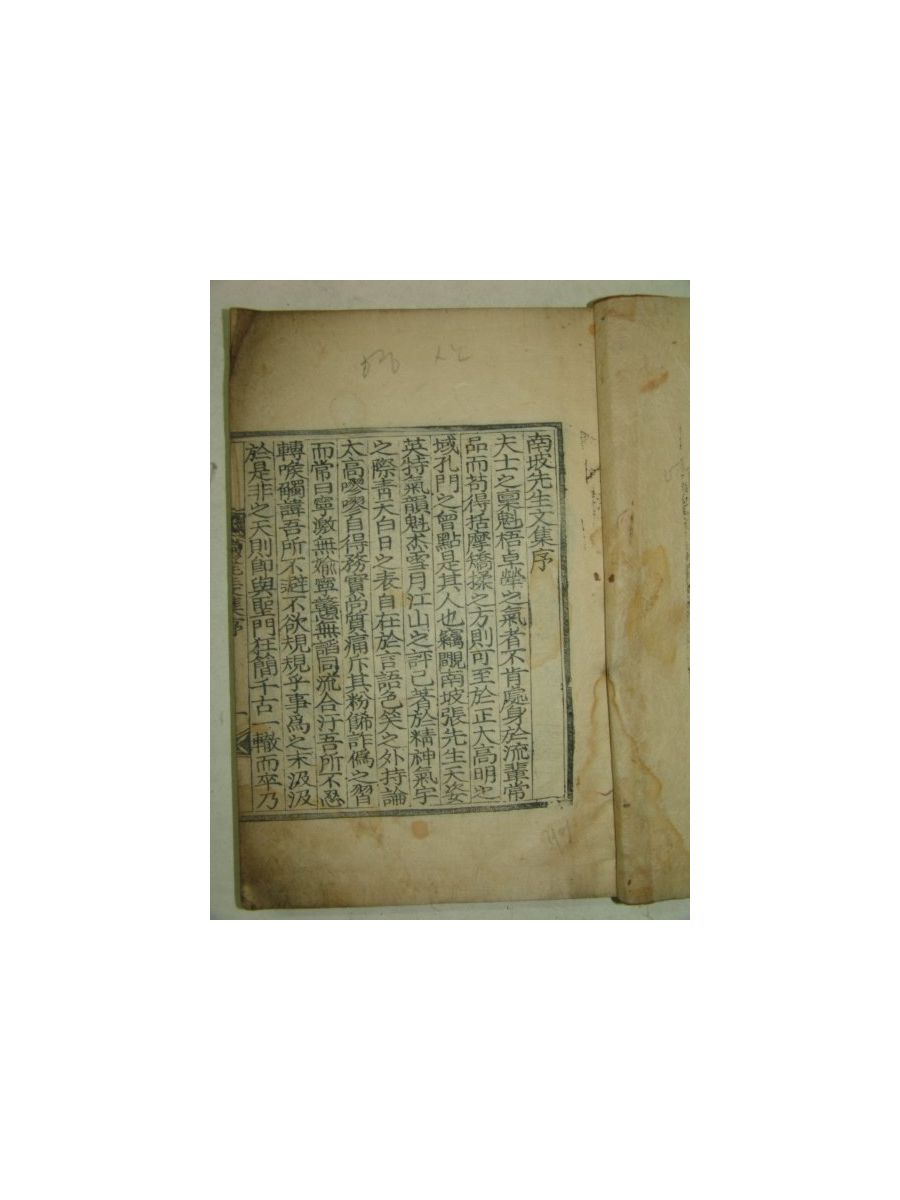 南坡先生文集序
夫士之稟魁梧卓犖之氣者不肯處身於流輩常
品而苟得括摩矯揉之方則可至於正大高明之
域孔門之曾點是其人也竊覵南坡張先生天姿
英特氣韻魁杰雪月江山之評已著於精神氣宇
之際靑天白日之表自在於言語色笑之外持論
太高嘐嘐自得務實尚質痛斥其粉餙詐僞之習
而常曰寧激無媮寧戇無謟同流合汙吾所不忍
轉喉觸諱吾所不避不欲規規乎事爲之末汲汲
於是非之天則卽與聖門狂簡千古一轍而卒乃